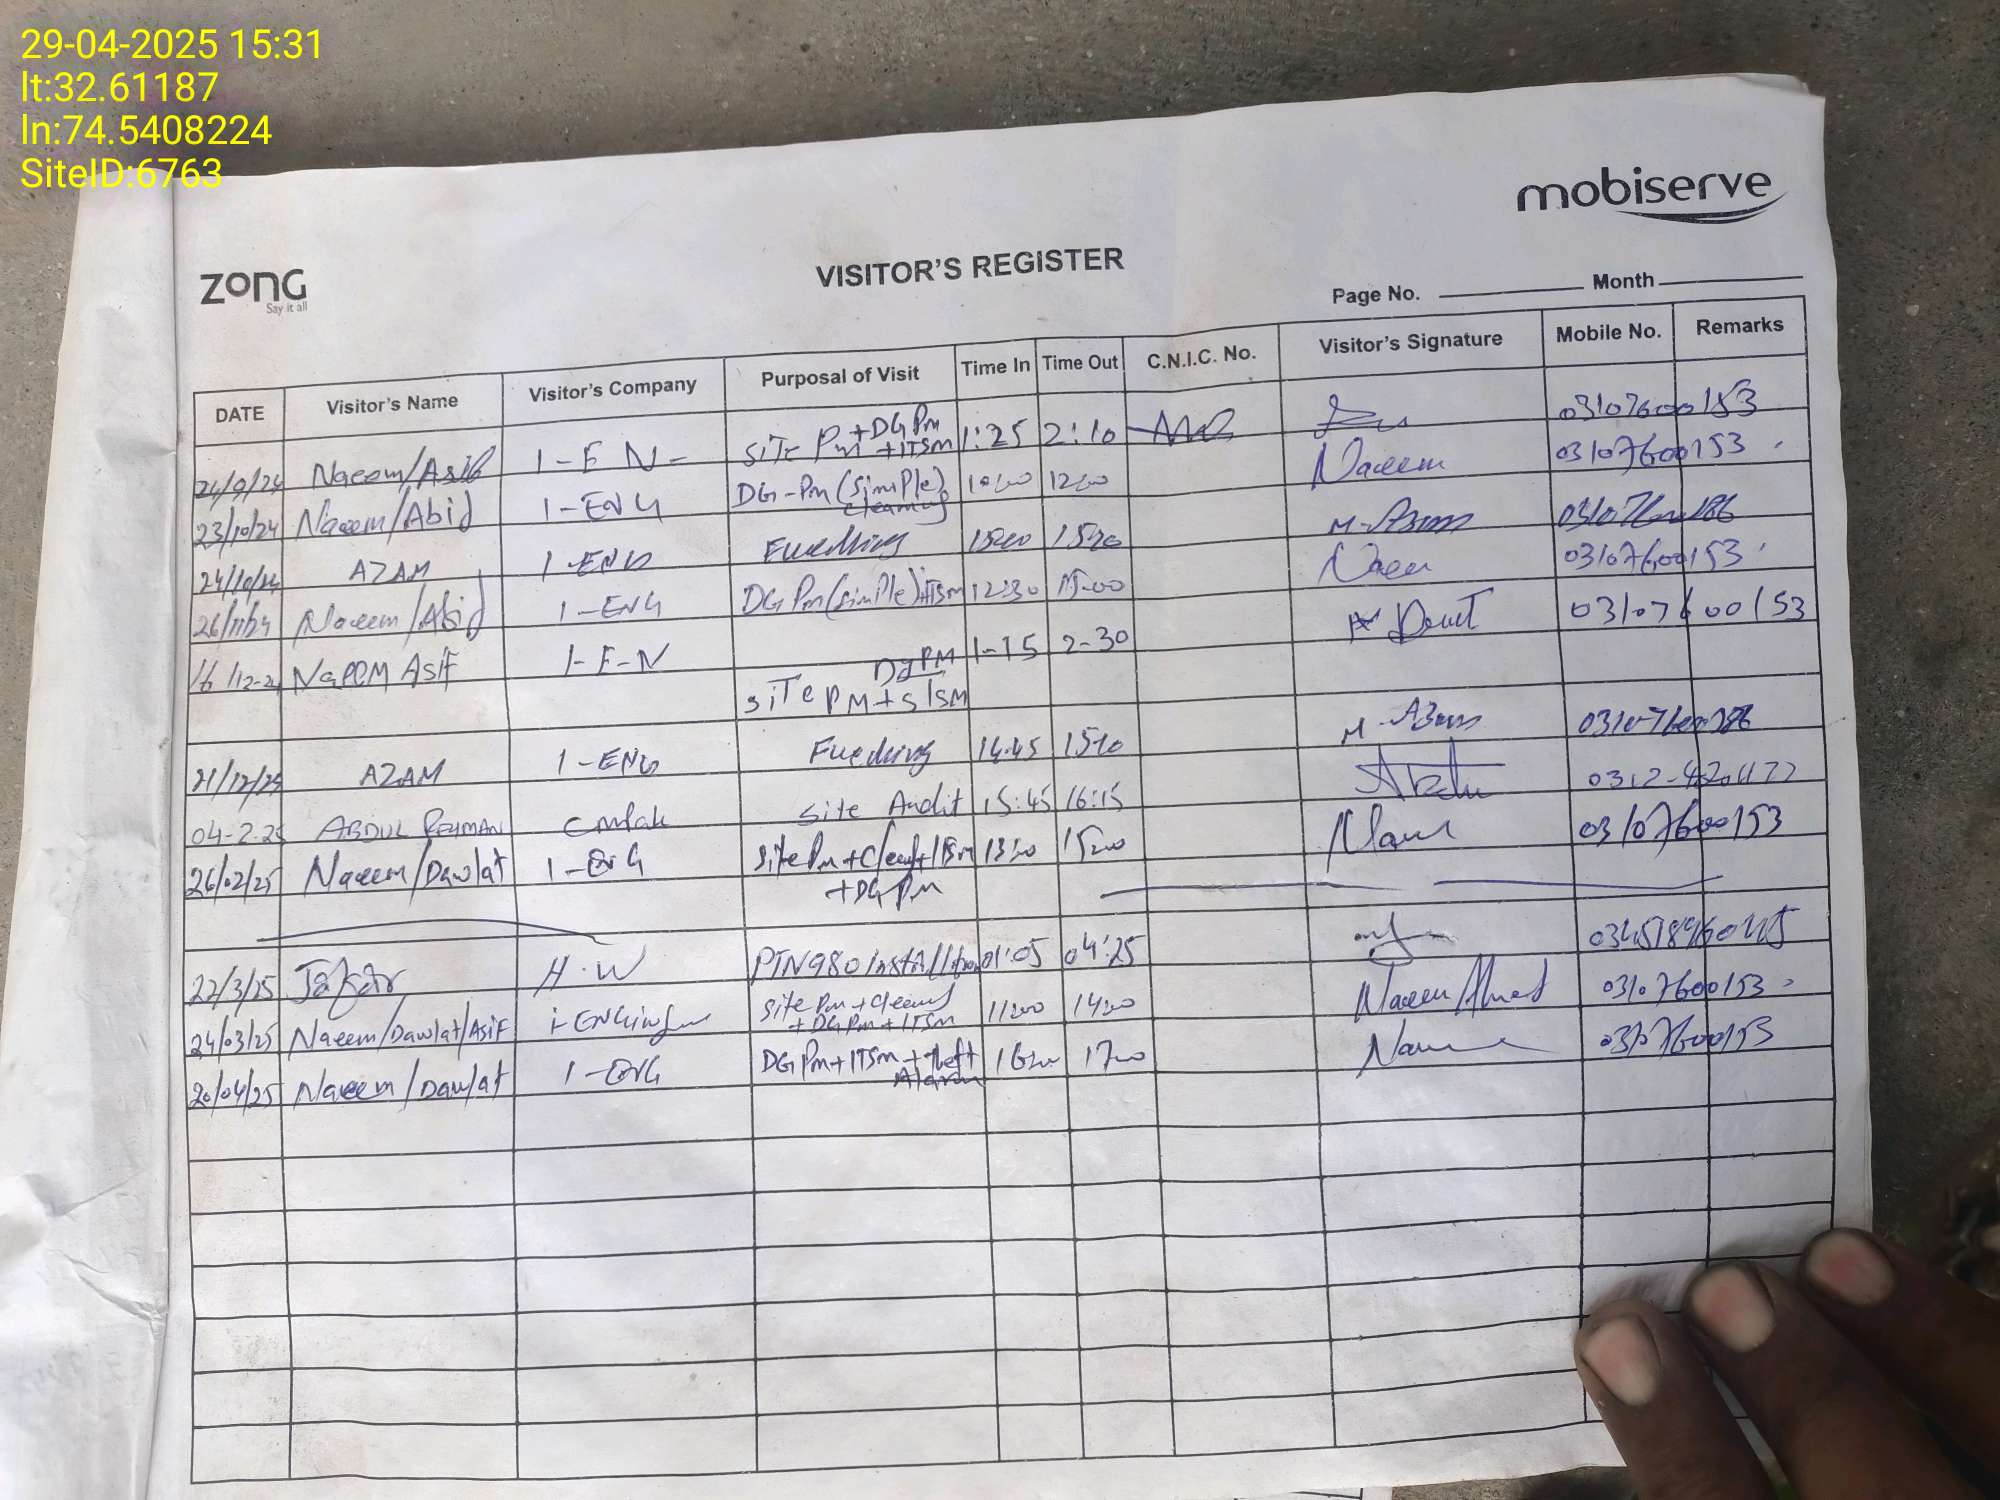 29-04-2025 15:31
lt:32.61187
ln:74.5408224
SiteID:6763
mobiserve
zong
Say it all
VISITOR'S REGISTER
Page No. Month
DATE Visitor's Name Visitor's Company Purposal of Visit Time In Time Out C.N.I.C. No. Visitor's Signature Mobile No. Remarks
24/9/24 Naeem/Asif 1-E N- Site Pm +DG Pm +ITSM 1:25 2:10 03107600153
23/10/24 Naeem/Abid 1-ENG DG-Pm (Simple) cleaning 12:00 Naeem 03107600153
24/10/24 AZAM 1-ENG Fuelling M-Azam
26/11/24 Naeem/Abid 1-ENG DG Pm (simple)+ITSM 12:30 15:00 Naeem 03107600153
16/12-24 NaeeM Asif 1-E-N Dg PM 1-15 2-30 03107600153
Site PM+S
21/12/24 AZAM 1-ENG Fuelling 14:45 1510 M-Azam
04-2-25 ABDUL REHMAN Site Audit 15:45 16:15
26/02/25 Naeem/Dawlat 1-ENG Site Pm+Clean+ITSM 1300 1500 03107600153
+DG Pm
22/3/25 H.W PTN980 Installation 01:05 04:25
24/03/25 Naeem/Dawlat/Asif Site Pm+Cleaning 1100 1400 Naeem Ahmed 03107600153
+DG Pm+ITSM
20/04/25 Naeem/Dawlat 1-ENG DG Pm+ITSM+Theft 1600 1700 03107600153
Alarm